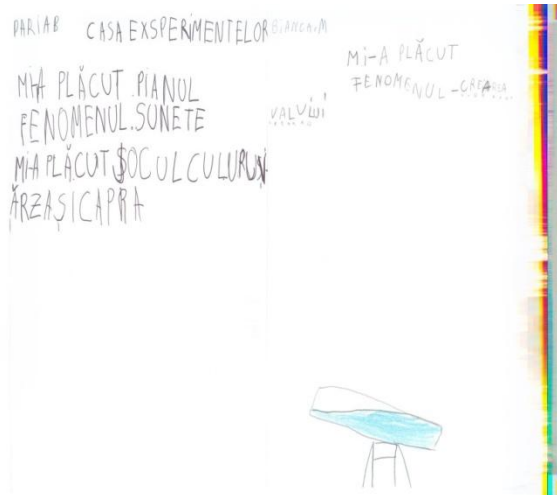 DARIAB CASA EXSPERIMENTELOR BIANCA.M
MI-A PLĂCUT PIANUL
FENOMENUL.SUNETE
MI-A PLĂCUT JOCUL CU LUPUL
VARZA ȘI CAPRA
MI-A PLĂCUT
FENOMENUL-CREAREA
VALULUI